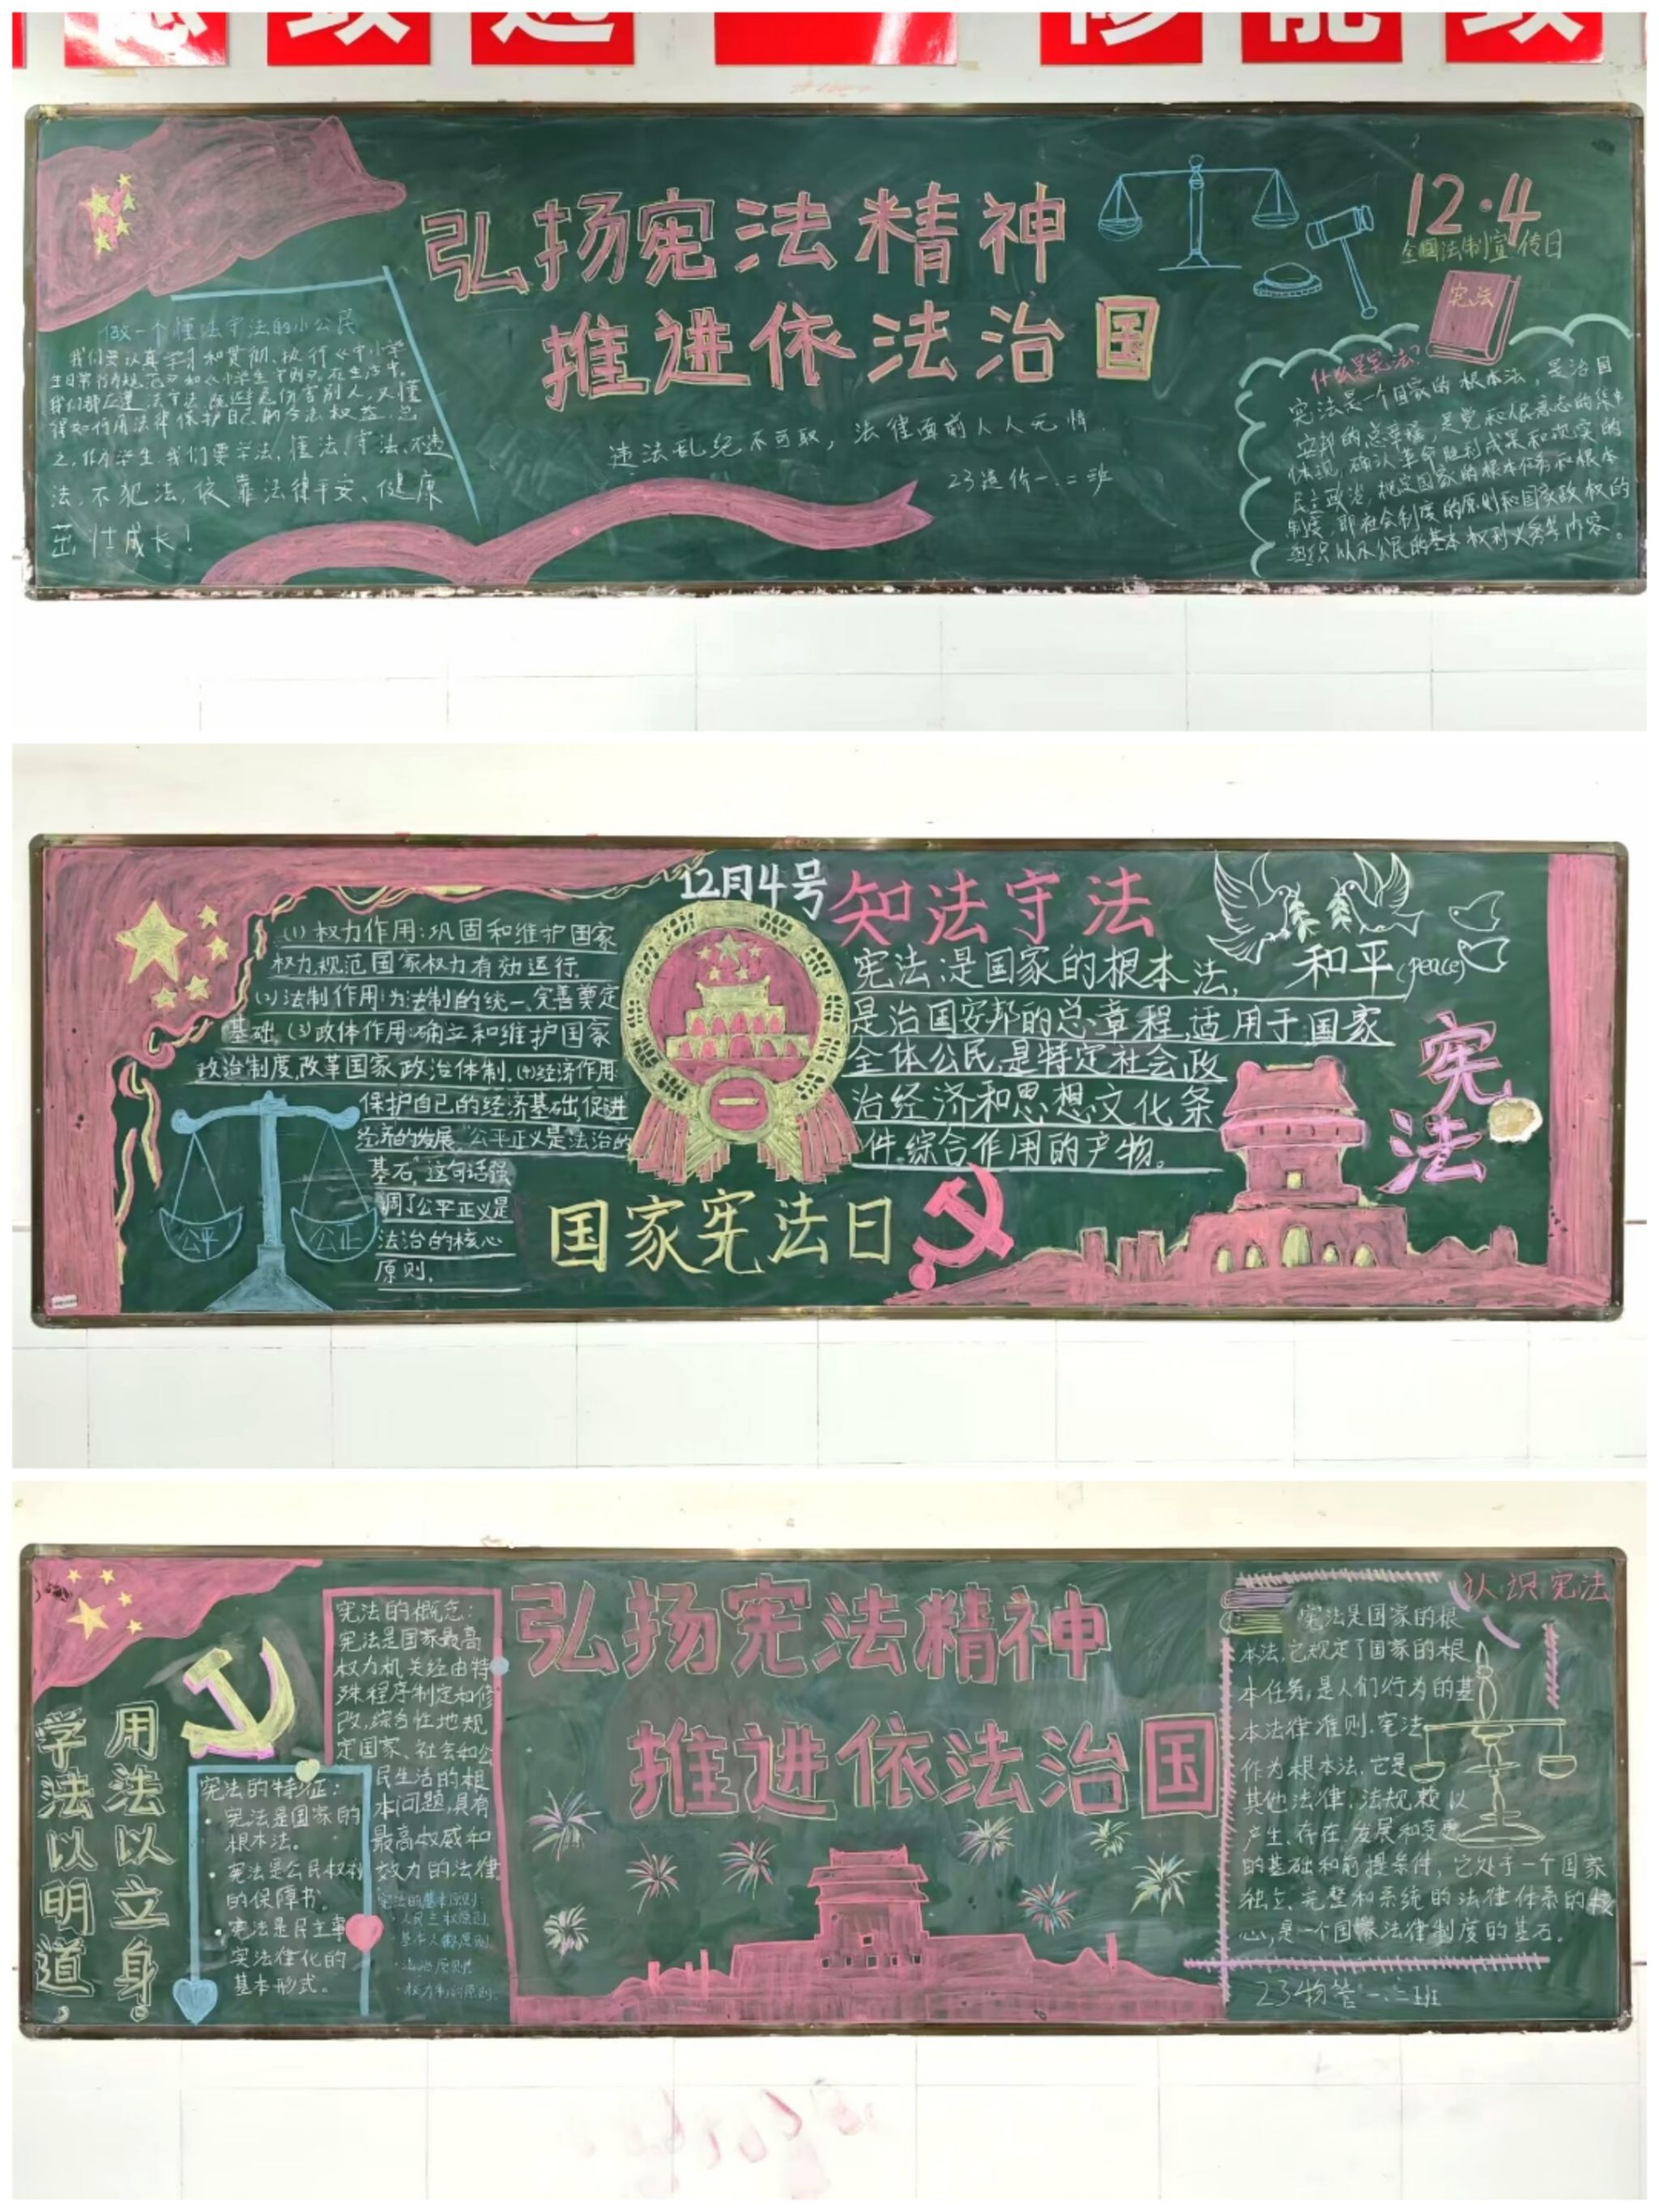 修 能 致
弘扬宪法精神
推进依法治国
违法乱纪不可取，法律面前人人无情
23造价一.二班
做一个懂法守法的小公民
我们要认真学习和贯彻、执行《中小学
生日常行为规范》和《小学生守则》，在生活中，
我们都应遵法守法
得如何用法律保护自己的合法权益，总
之，作为学生，我们要学法、懂法、守法、不违
法，不犯法，依靠法律平安、健康
茁壮成长！
12·4
全国法制宣传日
宪法
什么是宪法？
宪法是一个国家的根本法，是治国
安邦的总章程，是党和人民意志的集中
体现，确认革命胜利成果和现实的
民主政治，规定国家的根本任务和根本
制度，即社会制度的原则和国家政权的
组织以示公民的基本权利义务等内容。
12月4号
知法守法
(1)权力作用：巩固和维护国家
权力，规范国家权力有效运行
(2)法制作用：为法制的统一、完善奠定
基础。(3)政体作用：确立和维护国家
政治制度，改革国家政治体制。(4)经济作用：
保护自己的经济基础，促进
经济的发展。“公平正义是法治的
基石”，这句话强
调了公平正义是
法治的核心
原则。
公平 公正
宪法：是国家的根本法，
是治国安邦的总章程，适用于国家
全体公民，是特定社会政
治经济和思想文化条
件综合作用的产物。
和平(peace)
宪法
国家宪法日
弘扬宪法精神
推进依法治国
学法以明道，
用法以立身。
宪法的概念：
宪法是国家最高
权力机关经由特
殊程序制定和修
改，综合性地规
定国家、社会和公
民生活的根
本问题，具有
最高权威和
效力的法律
宪法的特征：
· 宪法是国家的
根本法。
· 宪法是公民权利
的保障书。
· 宪法是民主事
实法律化的
基本形式。
宪法的基本原则：
·人民主权原则
·基本人权原则
·法治原则
·权力制约原则
认识宪法
宪法是国家的根
本法，它规定了国家的根
本任务，是人们行为的基
本法律准则。宪法
作为根本法，它是
其他法律、法规赖以
产生、存在、发展和变更
的基础和前提条件，它处于一个国家
独立、完整和系统的法律体系的核
心，是一个国家法律制度的基石。
23物管一.二班